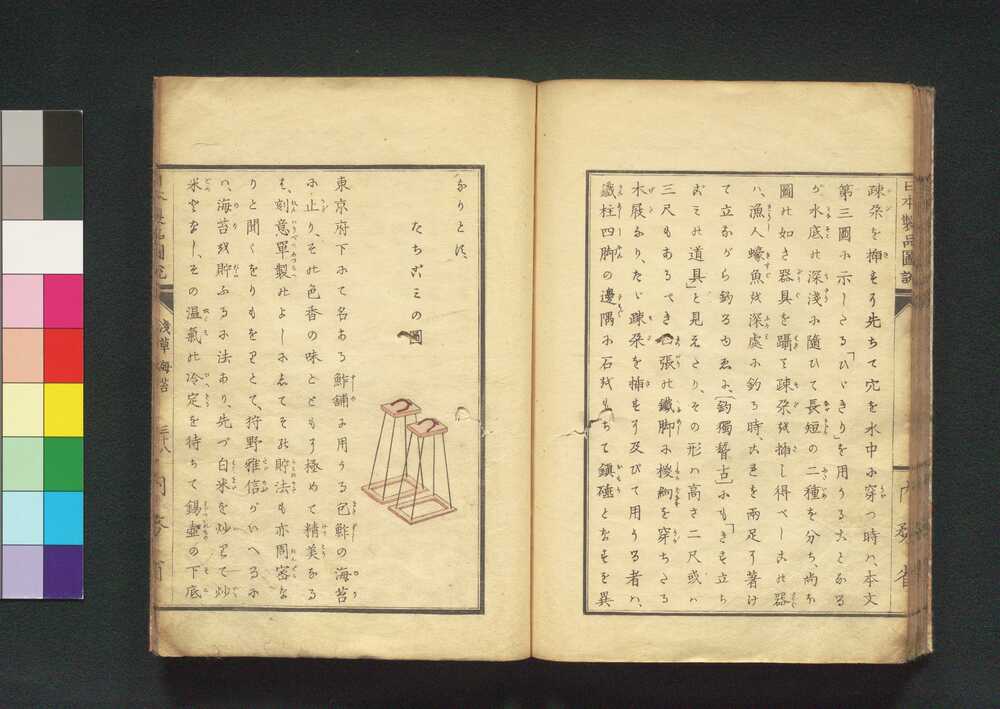 日本製品圖説
疎朶を揷をり先ちて穴を水中に穿つ時ハ、本文
第三圖に示したる「ひゞきり」を用うることなる
が水底の深淺に隨ひて長短の二種を分ち、尚ほ
圖の如き器具を躡て疎朶を揷し得べしこの器
ハ、漁人鱚魚を深處に釣る時、これを兩足に著け
て立ながら釣るゆゑに、(釣獨稽古)にも「きす立ち
こみの道具」と見えたり、その形ハ高さ二尺或ハ
三尺もあるべき張の鐵脚に梭絢を穿ちたる
木屐なり、たゞ疎朶を揷をり及びて用うる者ハ、
鐵柱四脚の邊隅に石をもちて鎭礁となすを異
なりとす
たちこみの圖
東京府下にて名ある鮓舖に用うる包鮓の海苔
に止り、その色香の味ともに極めて精美なる
も、刻意單製のよしにゑてその貯法も亦周密な
りと聞くをりもをとて、狩野雅信がいへるに
ハ、海苔を貯ふるに法あり、先づ白米を炒りて炒
米となし、その温氣の冷定を待ちて錫壺の下底
淺草海苔
内務省